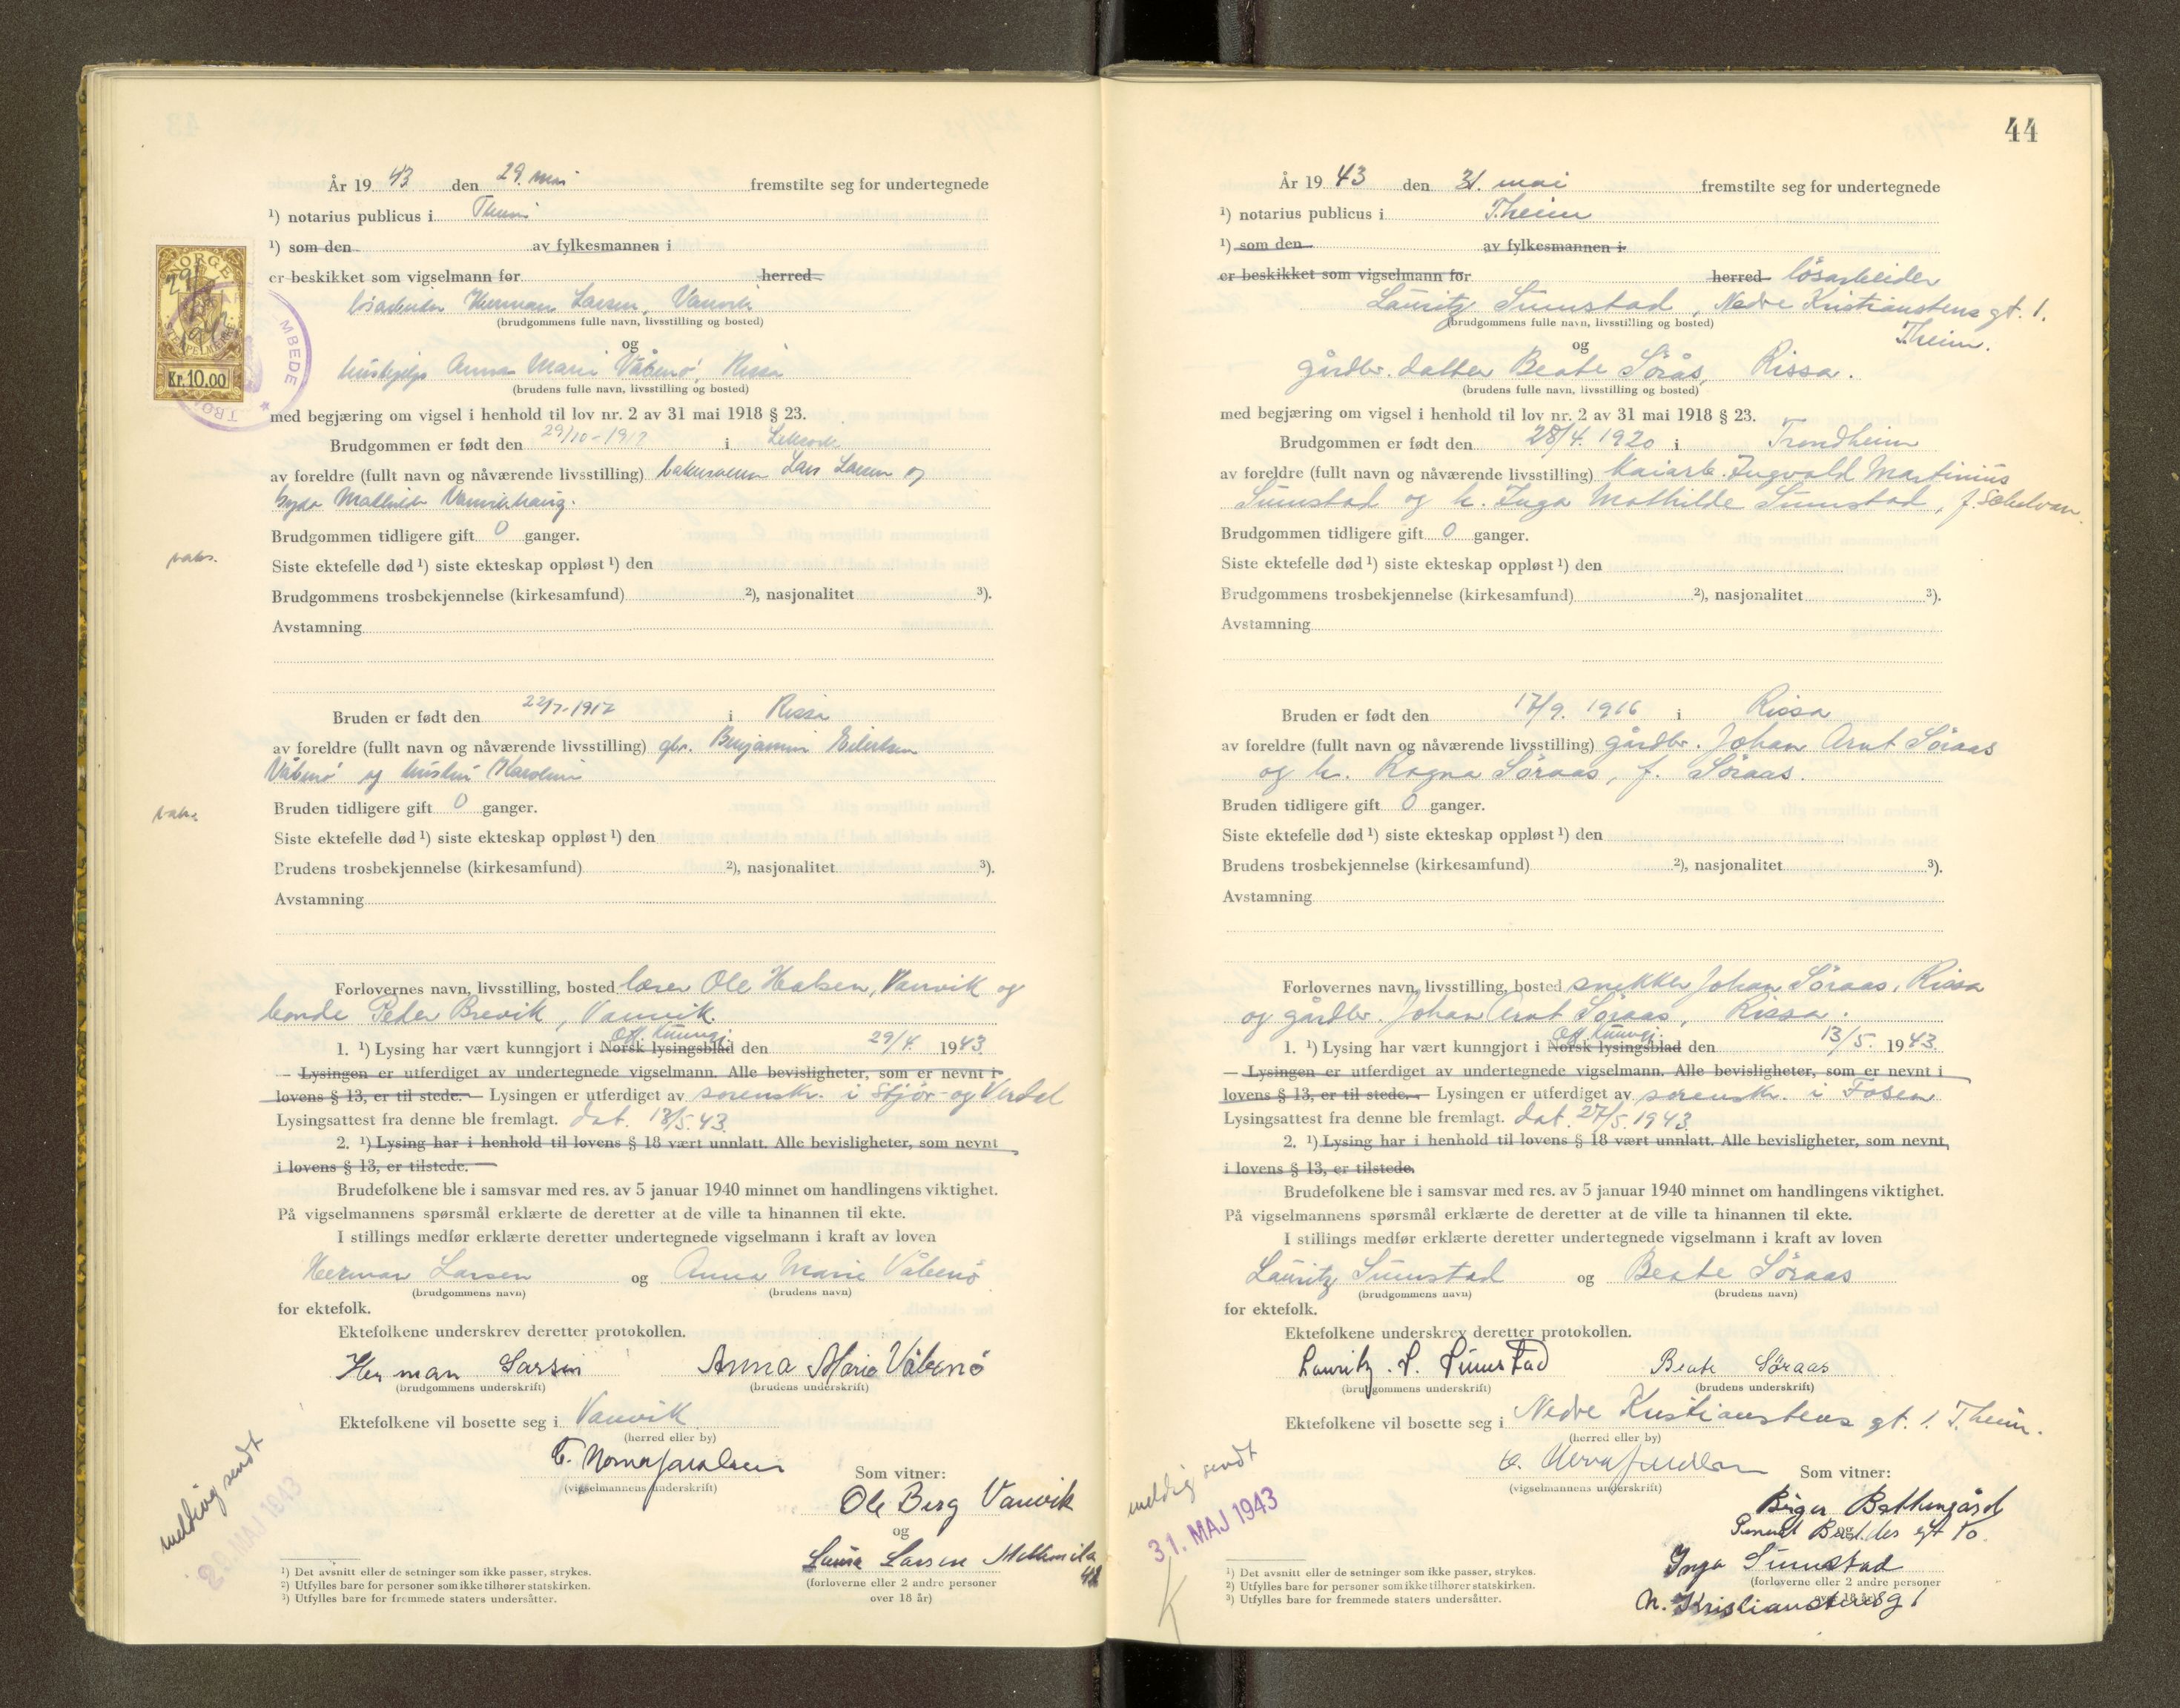 År 19 43 den 29. mai fremstilte seg for undertegnede
¹) notarius publicus i Theim
¹) som den av fylkesmannen i
er beskikket som vigselmann for herred
løsarbeider Herman Larsen, Vanvik
(brudgommens fulle navn, livsstilling og bosted)
og
hushjelp Anna Marie Våbenö, Rissa
(brudens fulle navn, livsstilling og bosted)
NORGE
Kr.10.00
MBEDE
med begjæring om vigsel i henhold til lov nr. 2 av 31 mai 1918 § 23.
Brudgommen er født den 29/10-1917 i Leksvik
av foreldre (fullt navn og nåværende livsstilling) Lars Larsen og
Mathilde
Brudgommen tidligere gift 0 ganger.
vaks.
Siste ektefelle død ¹) siste ekteskap oppløst ¹) den
Brudgommens trosbekjennelse (kirkesamfund) ²), nasjonalitet ³).
Avstamning
Bruden er født den 22/7-1917 i Rissa
av foreldre (fullt navn og nåværende livsstilling) gbr. Benjamin Eilertsen
Våbenö og hustru Karoline
Bruden tidligere gift 0 ganger.
vaks.
Siste ektefelle død ¹) siste ekteskap oppløst ¹) den
Brudens trosbekjennelse (kirkesamfund) ²), nasjonalitet ³).
Avstamning
Forlovernes navn, livsstilling, bosted lærer Ole Halsen, Vanvik og
bonde Peder Brevik, Vanvik.
Off. kunngj.
1. ¹) Lysing har vært kunngjort i Norsk lysingsblad den 29/4. 1943.
— Lysingen er utferdiget av undertegnede vigselmann. Alle bevisligheter, som er nevnt i
lovens § 13, er til stede. — Lysingen er utferdiget av sorenskr. i Stjør- og Verdal
Lysingsattest fra denne ble fremlagt. dat. 18/5.43.
2. ¹) Lysing har i henhold til lovens § 18 vært unnlatt. Alle bevisligheter, som nevnt
i lovens § 13, er tilstede.
Brudefolkene ble i samsvar med res. av 5 januar 1940 minnet om handlingens viktighet.
På vigselmannens spørsmål erklærte de deretter at de ville ta hinannen til ekte.
I stillings medfør erklærte deretter undertegnede vigselmann i kraft av loven
Herman Larsen og Anna Marie Våbenö
(brudgommens navn) (brudens navn)
for ektefolk.
Ektefolkene underskrev deretter protokollen.
Herman Larsen Anna Marie Våbenö
(brudgommens underskrift) (brudens underskrift)
Ektefolkene vil bosette seg i Vanvik
(herred eller by)
(vigselmannens underskrift)
Som vitner:
Ole Berg Vanvik
og
Laura Larsen
(forloverne eller 2 andre personer
over 18 år)
melding sendt
MAJ 1943
¹) Det avsnitt eller de setninger som ikke passer, strykes.
²) Utfylles bare for personer som ikke tilhører statskirken.
³) Utfylles bare for fremmede staters undersåtter.
44
År 19 43 den 31. mai fremstilte seg for undertegnede
¹) notarius publicus i T.heim
¹) som den av fylkesmannen i
er beskikket som vigselmann for herred løsarbeider
Lauritz Sumstad, Nedre Kristianstens gt. 1.
(brudgommens fulle navn, livsstilling og bosted)
T.heim.
og
gårdbr. datter Beate Sörås, Rissa.
(brudens fulle navn, livsstilling og bosted)
med begjæring om vigsel i henhold til lov nr. 2 av 31 mai 1918 § 23.
Brudgommen er født den 28/4. 1920 i Trondheim
av foreldre (fullt navn og nåværende livsstilling) kaiarb. Ingvald Martinius
Sumstad og h. Inga Mathilde Sumstad, f.
Brudgommen tidligere gift 0 ganger.
Siste ektefelle død ¹) siste ekteskap oppløst ¹) den
Brudgommens trosbekjennelse (kirkesamfund) ²), nasjonalitet ³).
Avstamning
Bruden er født den 17/9. 1916 i Rissa
av foreldre (fullt navn og nåværende livsstilling) gårdbr. Johan Arnt Söraas
og h. Ragna Söraas, f. Söraas.
Bruden tidligere gift 0 ganger.
Siste ektefelle død ¹) siste ekteskap oppløst ¹) den
Brudens trosbekjennelse (kirkesamfund) ²), nasjonalitet ³).
Avstamning
Forlovernes navn, livsstilling, bosted snekker Johan Söraas, Rissa
og gårdbr. Johan Arnt Söraas, Rissa.
Off. kunngj.
1. ¹) Lysing har vært kunngjort i Norsk lysingsblad den 13/5. 1943.
— Lysingen er utferdiget av undertegnede vigselmann. Alle bevisligheter, som er nevnt i
lovens § 13, er til stede. — Lysingen er utferdiget av sorenskr. i Fosen
Lysingsattest fra denne ble fremlagt. dat. 27/5.1943.
2. ¹) Lysing har i henhold til lovens § 18 vært unnlatt. Alle bevisligheter, som nevnt
i lovens § 13, er tilstede.
Brudefolkene ble i samsvar med res. av 5 januar 1940 minnet om handlingens viktighet.
På vigselmannens spørsmål erklærte de deretter at de ville ta hinannen til ekte.
I stillings medfør erklærte deretter undertegnede vigselmann i kraft av loven
Lauritz Sumstad og Beate Söraas
(brudgommens navn) (brudens navn)
for ektefolk.
Ektefolkene underskrev deretter protokollen.
Lauritz. S. Sumstad Beate Söraas
(brudgommens underskrift) (brudens underskrift)
Ektefolkene vil bosette seg i Nedre Kristianstens gt. 1. T.heim.
(herred eller by)
(vigselmannens underskrift)
Som vitner:
Birger
og
Inga Sumstad
(forloverne eller 2 andre personer
over 18 år)
N. Kristianstensg 1
melding sendt
31. MAJ 1943
K
¹) Det avsnitt eller de setninger som ikke passer, strykes.
²) Utfylles bare for personer som ikke tilhører statskirken.
³) Utfylles bare for fremmede staters undersåtter.